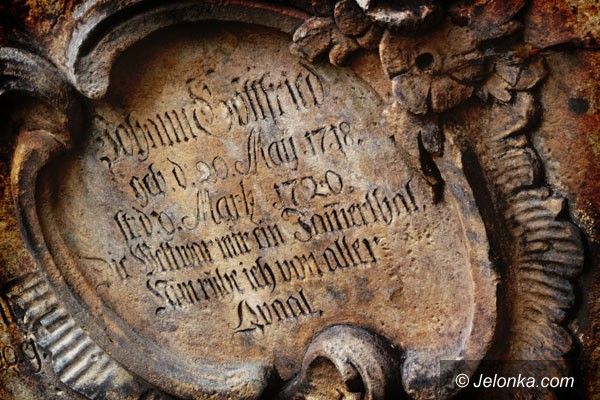 Johann Gottfried
geb. d. 20. May. 1718.
st. d. 9. Mart. 1720.
Die Welt war mir ein Jam̄erthal,
Nun ruhe ich von aller
Qvaal.
© Jelonka.com